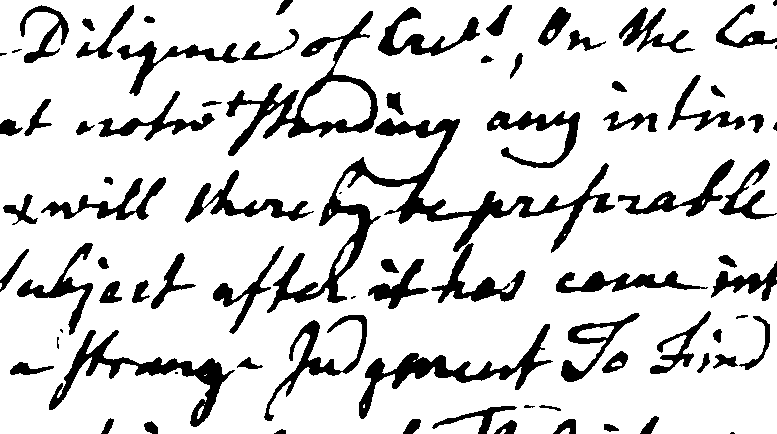 Diligence of Cre:ts, On the Ca
at notwt standing any intim
x will thereby be prefirable
subject after it has come int
a strange Judgment To Find